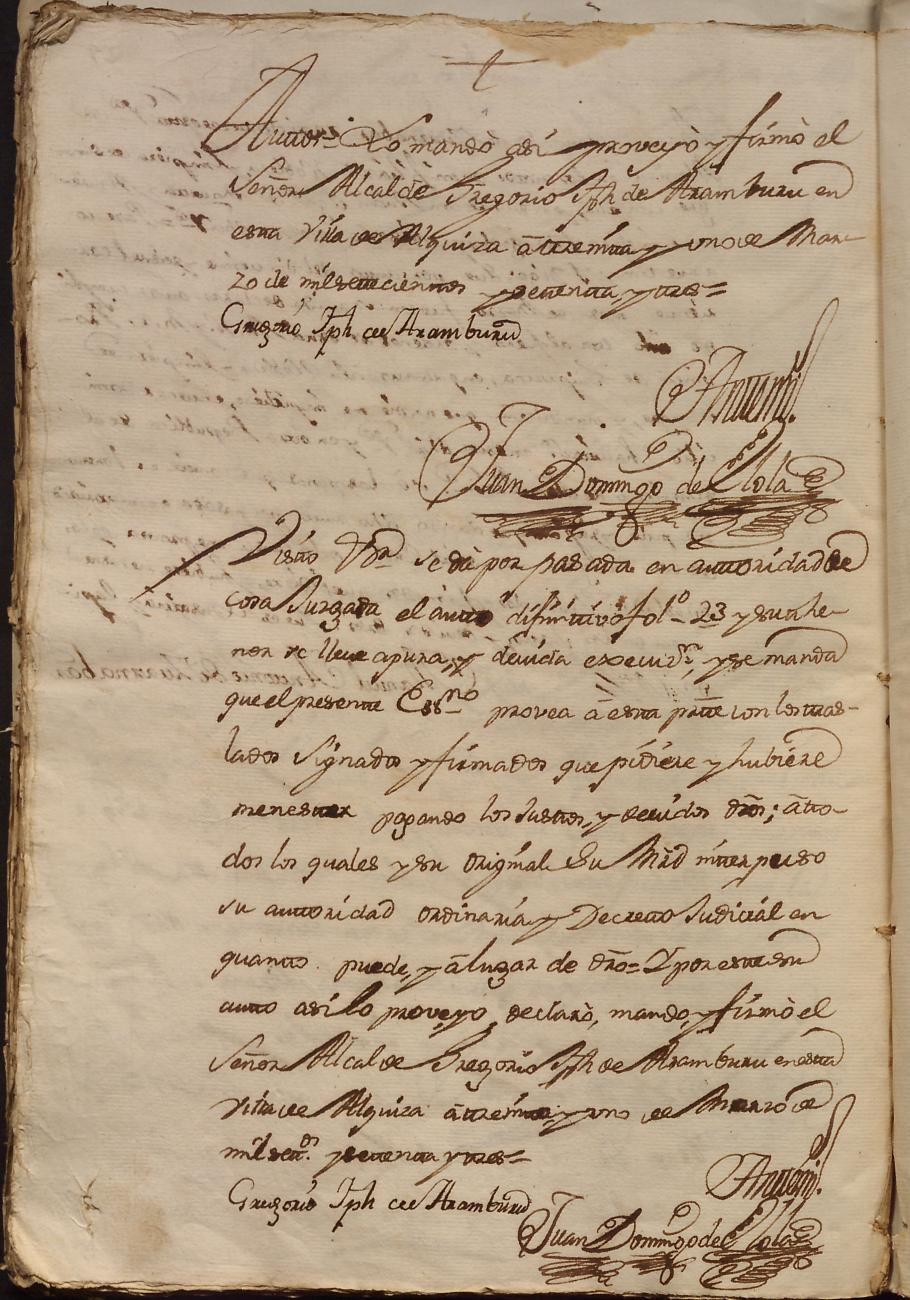 Auttos. Lo mandò así proveyò y firmò el
Señor Alcalde Gregorio Jph de Aramburu en
esta Villa de Alquiza â treintta y uno de Mar-
zo de mil settecienttos y settentta, y tres =
Gregorio Jph de Aramburu
Anttemi.
Juan Domingo de Olola
Visto dhos se dà por pasada en auttoridad de
cosa Juzgada el autto difinittivo fol.º 23 y su the-
nor se lleve a pura, y devida execuz.n, y se manda
que el presentte Essno provea â esta partte con los tras-
lados signados y firmados que pidiere y hubiere
menestter pagando los Justtos, y devidos dros; â tto-
dos los quales y su original Su Mrd intterpuso
su auttoridad ordinaria y Decretto Judicial en
quantto puede, y â lugar de dro = Y por estte su
autto asi lo proveyo, declarò, mandò, y firmò el
Señor Alcalde Gregorio Jph de Aramburu en estta
Villa de Alquiza â treintta, y uno de Marzo de
mil sett.os y settentta y tres =
Gregorio Jph de Aramburu
Anttemi.
Juan Domingo de Olola